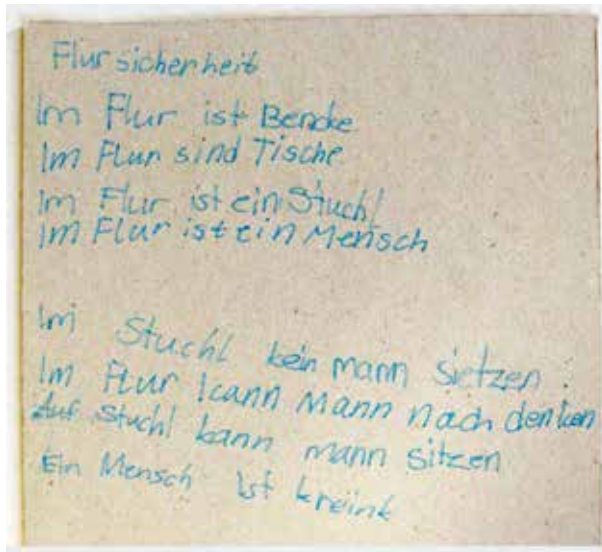 Flursicherheit
Im Flur ist Bencke
Im Flur sind Tische
Im Flur ist ein Stuchl
Im Flur ist ein Mensch
Im Stuchl kein mann sietzen
Im Flur kann Mann nach denken
Auf Stuchl kann mann sitzen
Ein Mensch ist kreink